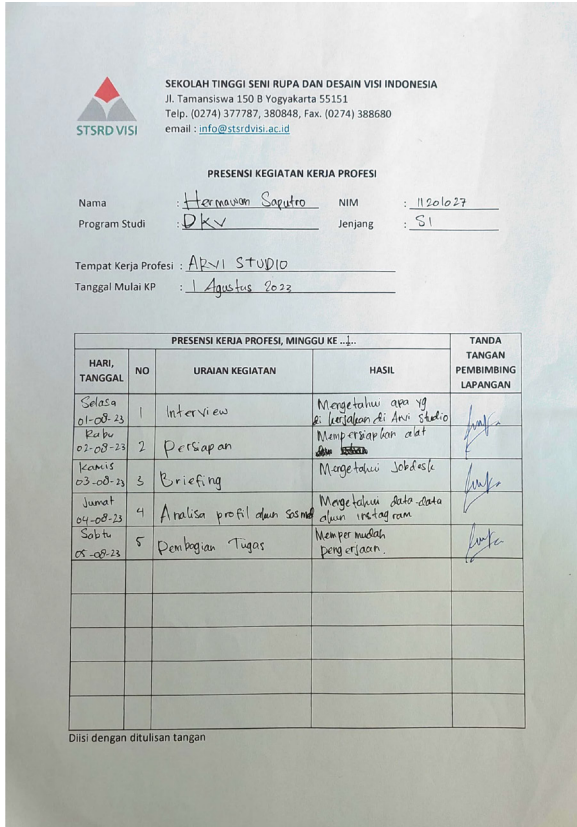 STSRD VISI
SEKOLAH TINGGI SENI RUPA DAN DESAIN VISI INDONESIA
Jl. Tamansiswa 150 B Yogyakarta 55151
Telp. (0274) 377787, 380848, Fax. (0274) 388680
email : info@stsrdvisi.ac.id
PRESENSI KEGIATAN KERJA PROFESI
Nama : Hermawan Saputro NIM : 11201027
Program Studi : DKV Jenjang : S1
Tempat Kerja Profesi : ARVI STUDIO
Tanggal Mulai KP : 1 Agustus 2023
PRESENSI KERJA PROFESI, MINGGU KE ..1..
TANDA TANGAN PEMBIMBING LAPANGAN
HARI, TANGGAL NO URAIAN KEGIATAN HASIL
Selasa 01-08-23 1 Interview Mengetahui apa yg di kerjakan di Arvi Studio
Rabu 02-08-23 2 Persiapan Mempersiapkan alat
Kamis 03-08-23 3 Briefing Mengetahui Jobdesk
Jumat 04-08-23 4 Analisa profil akun sosmed Mengetahui data-data akun instagram
Sabtu 05-08-23 5 Pembagian Tugas Mempermudah pengerjaan.
Diisi dengan ditulisan tangan